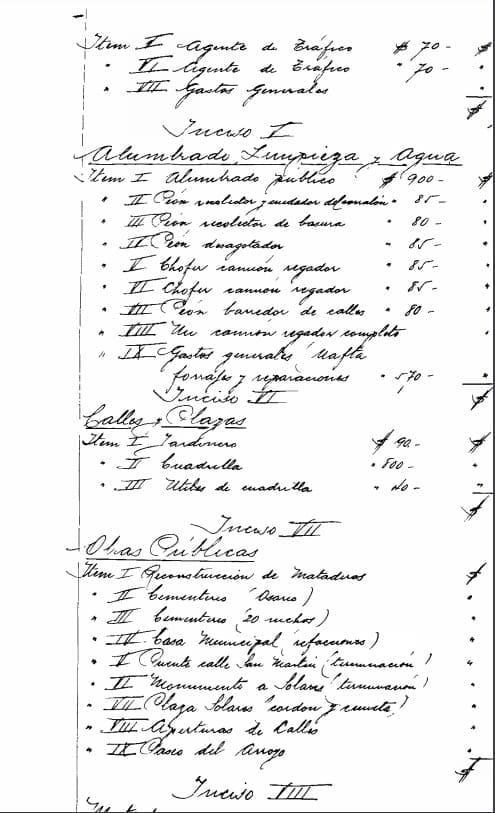 Item V Agente de Tráfico $ 70- $
" VI Agente de Tráfico " 70- "
" VII Gastos Generales "
$
Inciso V
Alumbrado, Limpieza y Agua
Item I Alumbrado público $ 900- $
" II Peón recolector y cuidador del corralón " 85- "
" III Peón recolector de basura " 80- "
" IV Peón desagotador " 85- "
" V Chofer camión regador " 85- "
" VI Chofer camión regador " 85- "
" VII Peón barredor de calles " 80- "
" VIII Un camión regador completo "
" IX Gastos generales Nafta
forrajes y reparaciones " 570- "
Inciso VI $
Calles y Plazas
Item I Jardinero $ 90- $
" II Cuadrilla " 800- "
" III Utiles de cuadrilla " 40- "
$
Inciso VII
Obras Públicas
Item I Reconstrucción de Mataderos $
" II Cementerio (Osario) "
" III Cementerio (20 nichos) "
" IV Casa Municipal (refacciones) "
" V Puente calle San Martín (terminación) "
" VI Monumento a Solares (terminación) "
" VII Plaza Solares (cordon y ) "
" VIII Aperturas de Calles "
" IX Paseo del Arroyo "
$
Inciso VIII